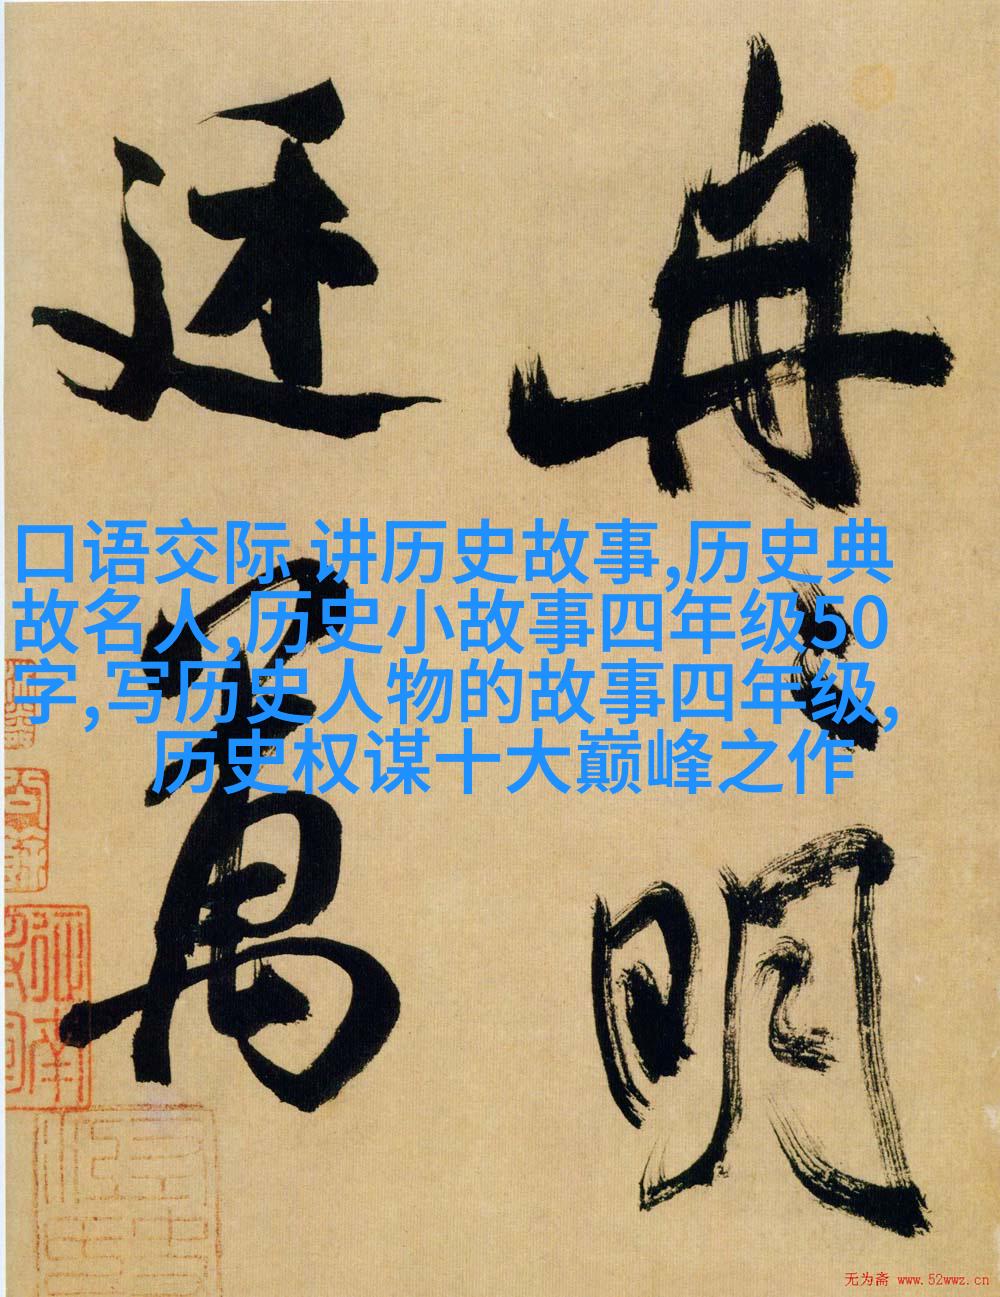 口语交际 讲历史故事,历史典
故名人,历史小故事四年级50
字,写历史人物的故事四年级,
历史权谋十大巅峰之作
冉明
无为斋 www.52wwz.cn